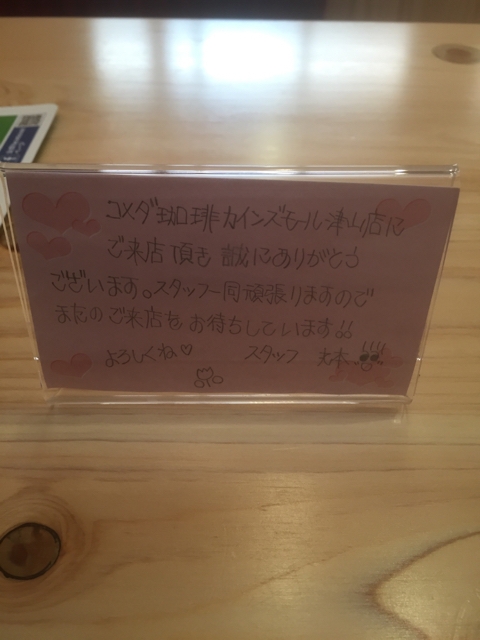 コメダ珈琲カインズモール津山店に
ご来店頂き誠にありがとう
ございます。スタッフ一同頑張りますので
またのご来店をお待ちしています!!
よろしくね♡ スタッフ